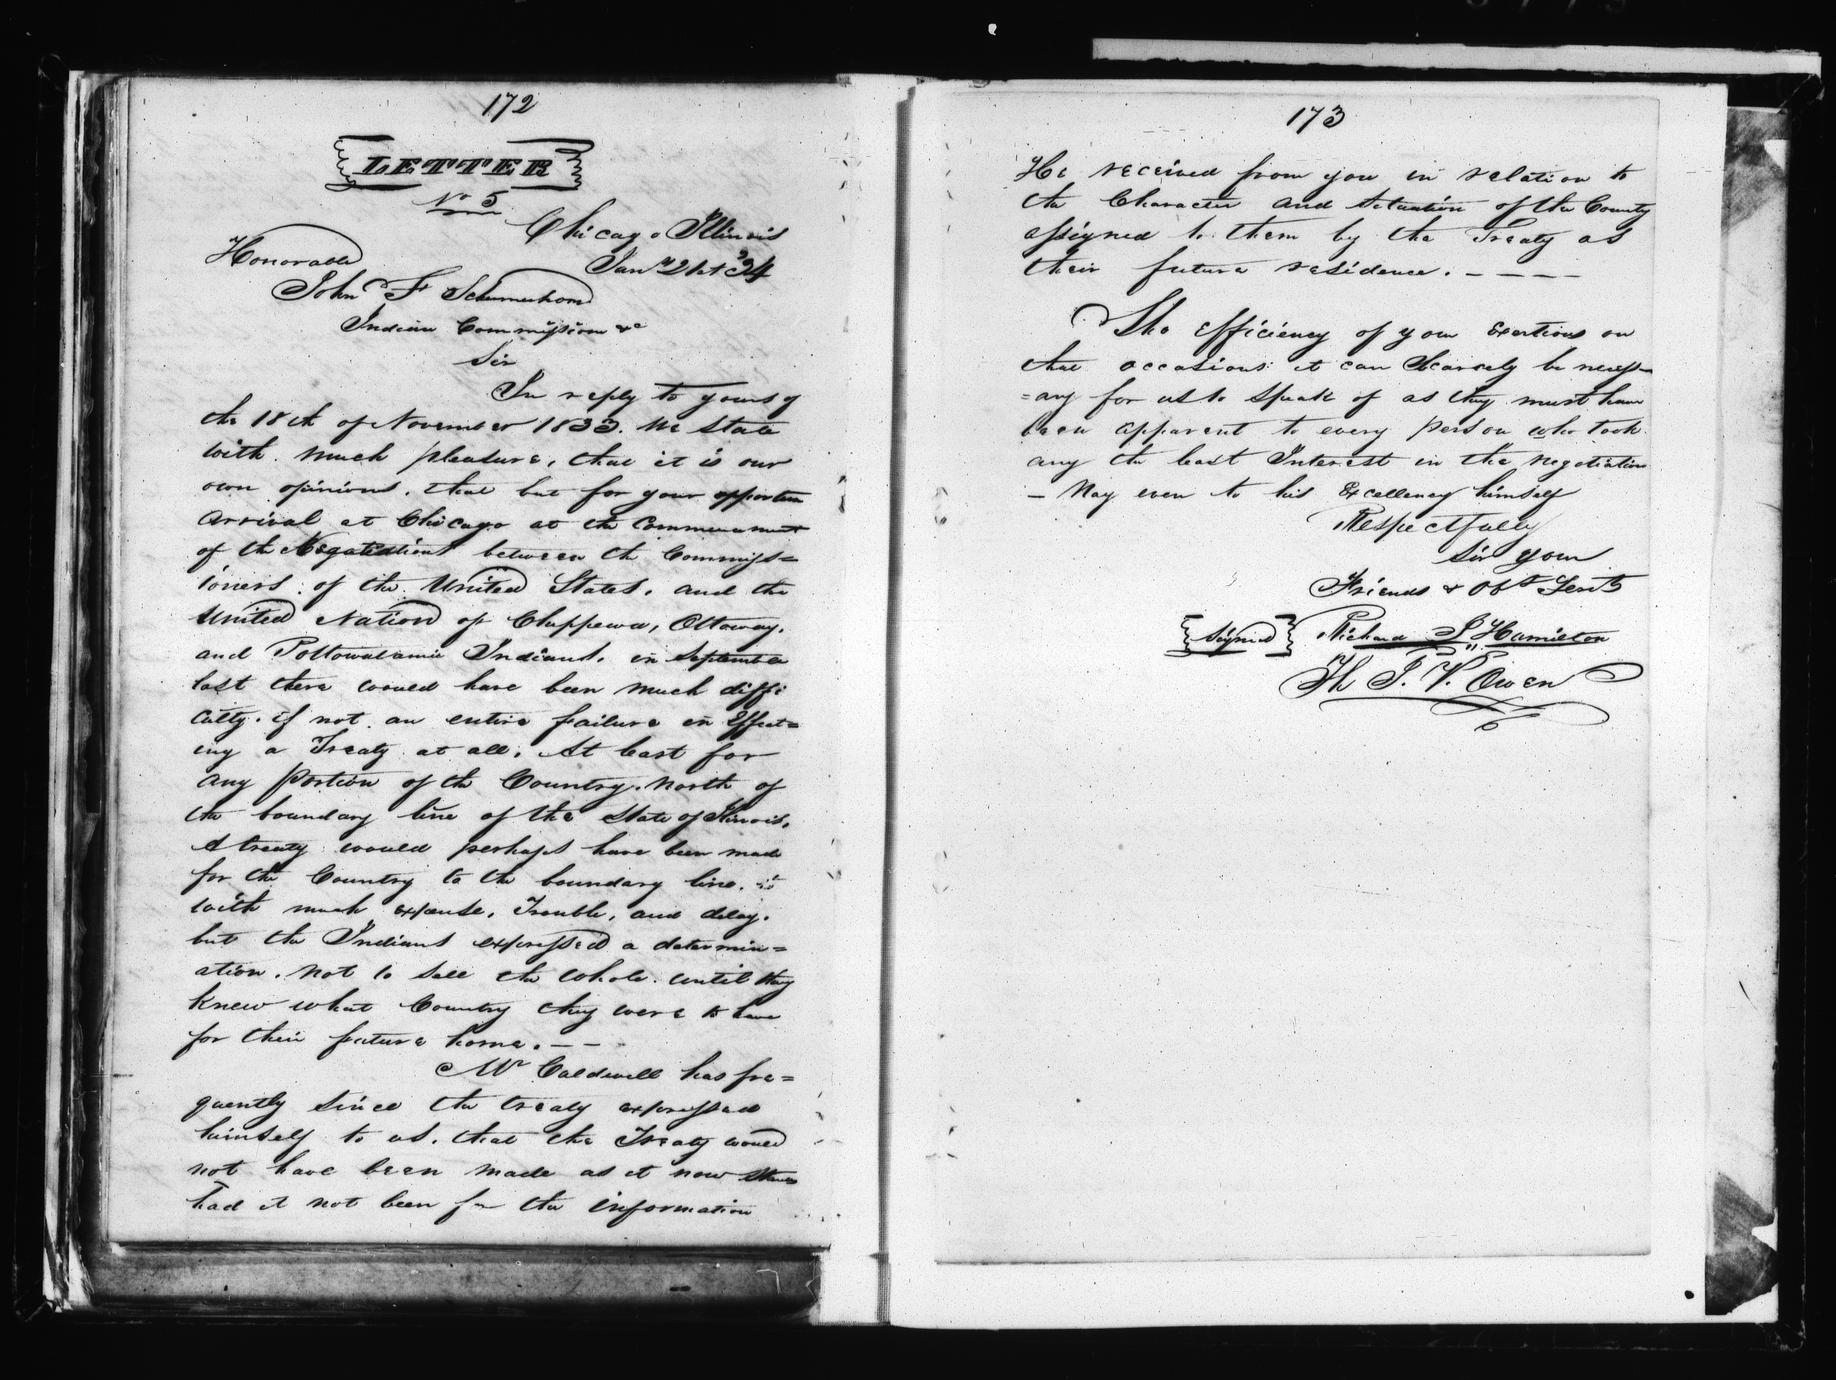 172
LETTER
No 5
Chicago Illinois
Jany 21st 34
Honorable
John F Schermerhorn
Indian Commission &c
Sir
In reply to yours of
the 18th of November 1833. We state
with much pleasure, that it is our
own opinions, that but for your opportune
arrival at Chicago at the Commencement
of the Negotiations between the Commiss=
ioners of the United States, and the
United Nation of Chippewa, Ottoway,
and Pottowatamie Indians, in September
last there would have been much diffi
culty. if not an entire failure in Effect=
ing a Treaty at all; At least for
any portion of the Country. North of
the boundary line of the State of Illinois,
A treaty would perhaps have been made
for the Country to the boundary line.
with much expense, Trouble, and delay.
but the Indians expressed a determin=
ation. not to sell the whole until they
knew what Country they were to have
for their future home. — —
Mr Caldwell has fre=
quently since the treaty expressed
himself to us. that the Treaty would
not have been made as it now stands
had it not been for the information
173
He received from you in relation to
the Character and situation of the County
assigned to them by the Treaty as
their future residence. — — — —
The efficiency of your Exertions on
that occasions it can Scarcely be necess=
=ary for us to speak of as they must have
been apparent to every person who took
any the least Interest in the negotiation
— Nay even to his Excellency himself
Respectfully
Sir your
Friends & Obt Servts
Signed Richard J. Hamilton
Th J. V. Owen